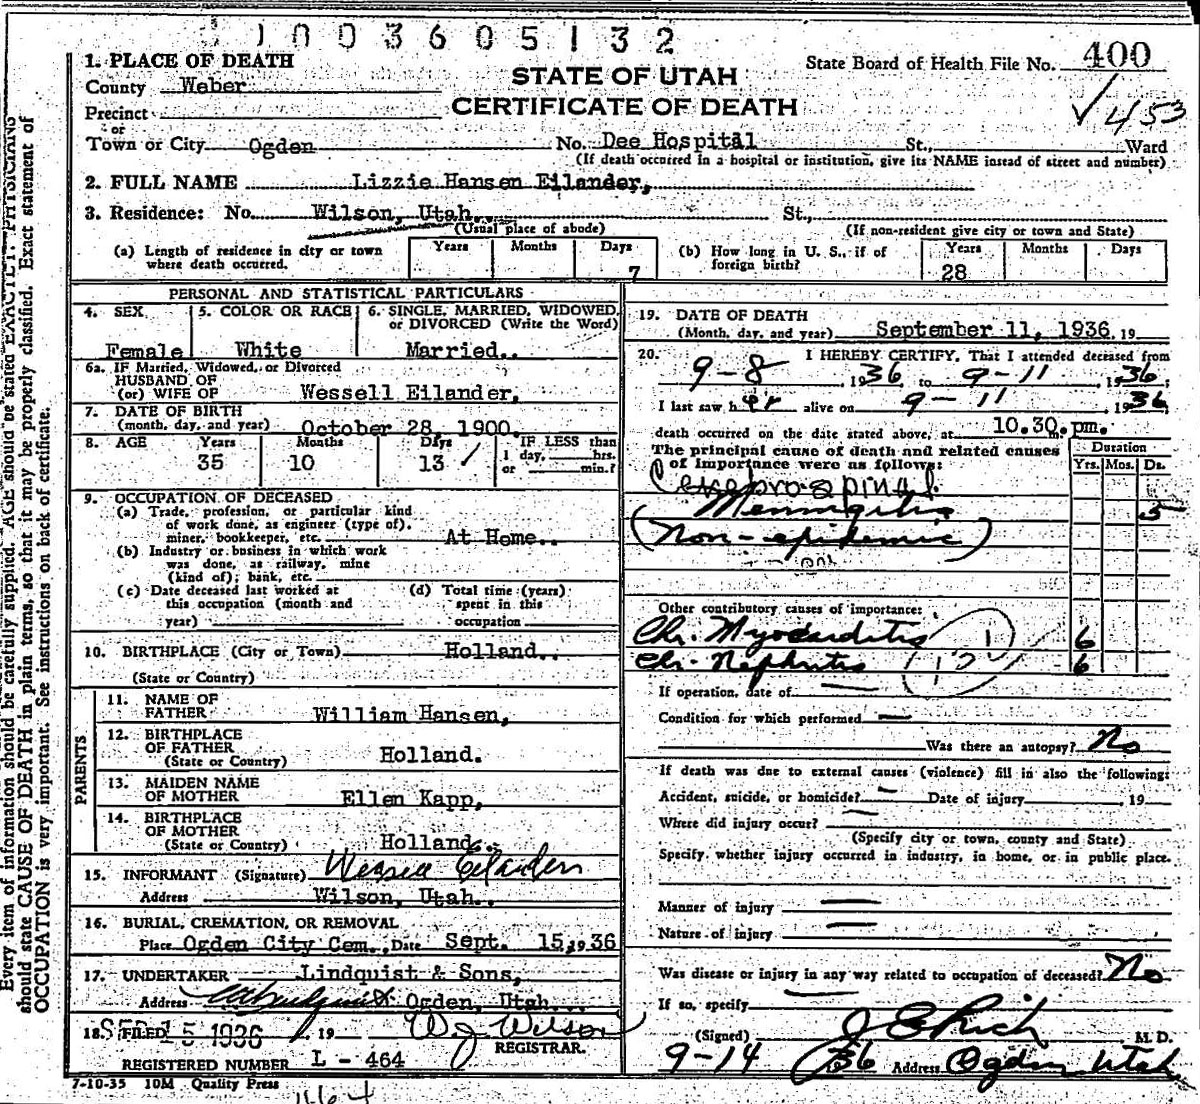 1003605132
1. PLACE OF DEATH
County Weber
Precinct
or
Town or City Ogden
STATE OF UTAH
CERTIFICATE OF DEATH
State Board of Health File No. 400
✓ 453
No. Dee Hospital St., Ward
(If death occurred in a hospital or institution, give its NAME instead of street and number)
2. FULL NAME Lizzie Hansen Eilander,
3. Residence: No. Wilson, Utah. St.,
(Usual place of abode) (If non-resident give city or town and State)
(a) Length of residence in city or town where death occurred. Years Months Days 7
(b) How long in U. S., if of foreign birth? Years 28 Months Days
PERSONAL AND STATISTICAL PARTICULARS
4. SEX Female
5. COLOR OR RACE White
6. SINGLE, MARRIED, WIDOWED, or DIVORCED (Write the Word) Married..
6a. IF Married, Widowed, or Divorced
HUSBAND OF
(or) WIFE OF Wessell Eilander,
7. DATE OF BIRTH
(month, day, and year) October 28, 1900.
8. AGE Years 35 Months 10 Days 13 IF LESS than 1 day, hrs. or min.?
9. OCCUPATION OF DECEASED
(a) Trade, profession, or particular kind of work done, as engineer (type of), miner, bookkeeper, etc. At Home..
(b) Industry or business in which work was done, as railway, mine (kind of); bank, etc.
(c) Date deceased last worked at this occupation (month and year)
(d) Total time (years) spent in this occupation
10. BIRTHPLACE (City or Town) Holland..
(State or Country)
PARENTS
11. NAME OF FATHER William Hansen,
12. BIRTHPLACE OF FATHER (State or Country) Holland.
13. MAIDEN NAME OF MOTHER Ellen Kapp,
14. BIRTHPLACE OF MOTHER (State or Country) Holland.
15. INFORMANT (Signature) Wessel Eilander
Address Wilson, Utah..
16. BURIAL, CREMATION, OR REMOVAL
Place Ogden City Cem. Date Sept. 15, 1936
17. UNDERTAKER Lindquist & Sons,
Address Ogden, Utah.
18. FILED SEP 15 1936, 19 W J Wilson
REGISTRAR.
REGISTERED NUMBER L - 464
7-10-35 10M Quality Press
19. DATE OF DEATH
(Month, day, and year) September 11, 1936, 19
20. I HEREBY CERTIFY, That I attended deceased from
9-8, 1936 to 9-11, 1936;
I last saw her alive on 9-11, 1936
death occurred on the date stated above, at 10.30.pm. m.
The principal cause of death and related causes of importance were as follows:
Duration
Yrs. Mos. Ds.
Cerebro-spinal
Meningitis 5
(Non-epidemic)
Other contributory causes of importance:
Chr. Myocarditis 6
Chr. Nephritis 6
If operation, date of —
Condition for which performed —
Was there an autopsy? No
If death was due to external causes (violence) fill in also the following:
Accident, suicide, or homicide? — Date of injury , 19
Where did injury occur? —
(Specify city or town, county and State)
Specify whether injury occurred in industry, in home, or in public place.
Manner of injury —
Nature of injury —
Was disease or injury in any way related to occupation of deceased? No
If so, specify —
(Signed) J E Rich M. D.
9-14 36 Address Ogden Utah
Every item of information should be carefully supplied. AGE should be stated EXACTLY. PHYSICIANS
should state CAUSE OF DEATH in plain terms, so that it may be properly classified. Exact statement of
OCCUPATION is very important. See instructions on back of certificate.